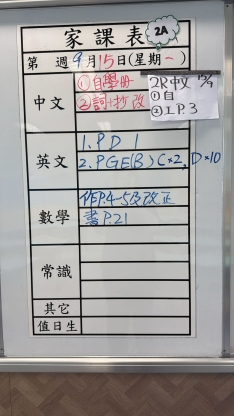 家課表
2A
第 週 9月15日(星期一)
中文
①自學冊
②詞+抄改
2R中文 15/9
①自
②工P.3
英文
1. PD 1
2. PGE(B) C×2, D×10
數學
作P.4-5及改正
書P.21
常識
其它
值日生